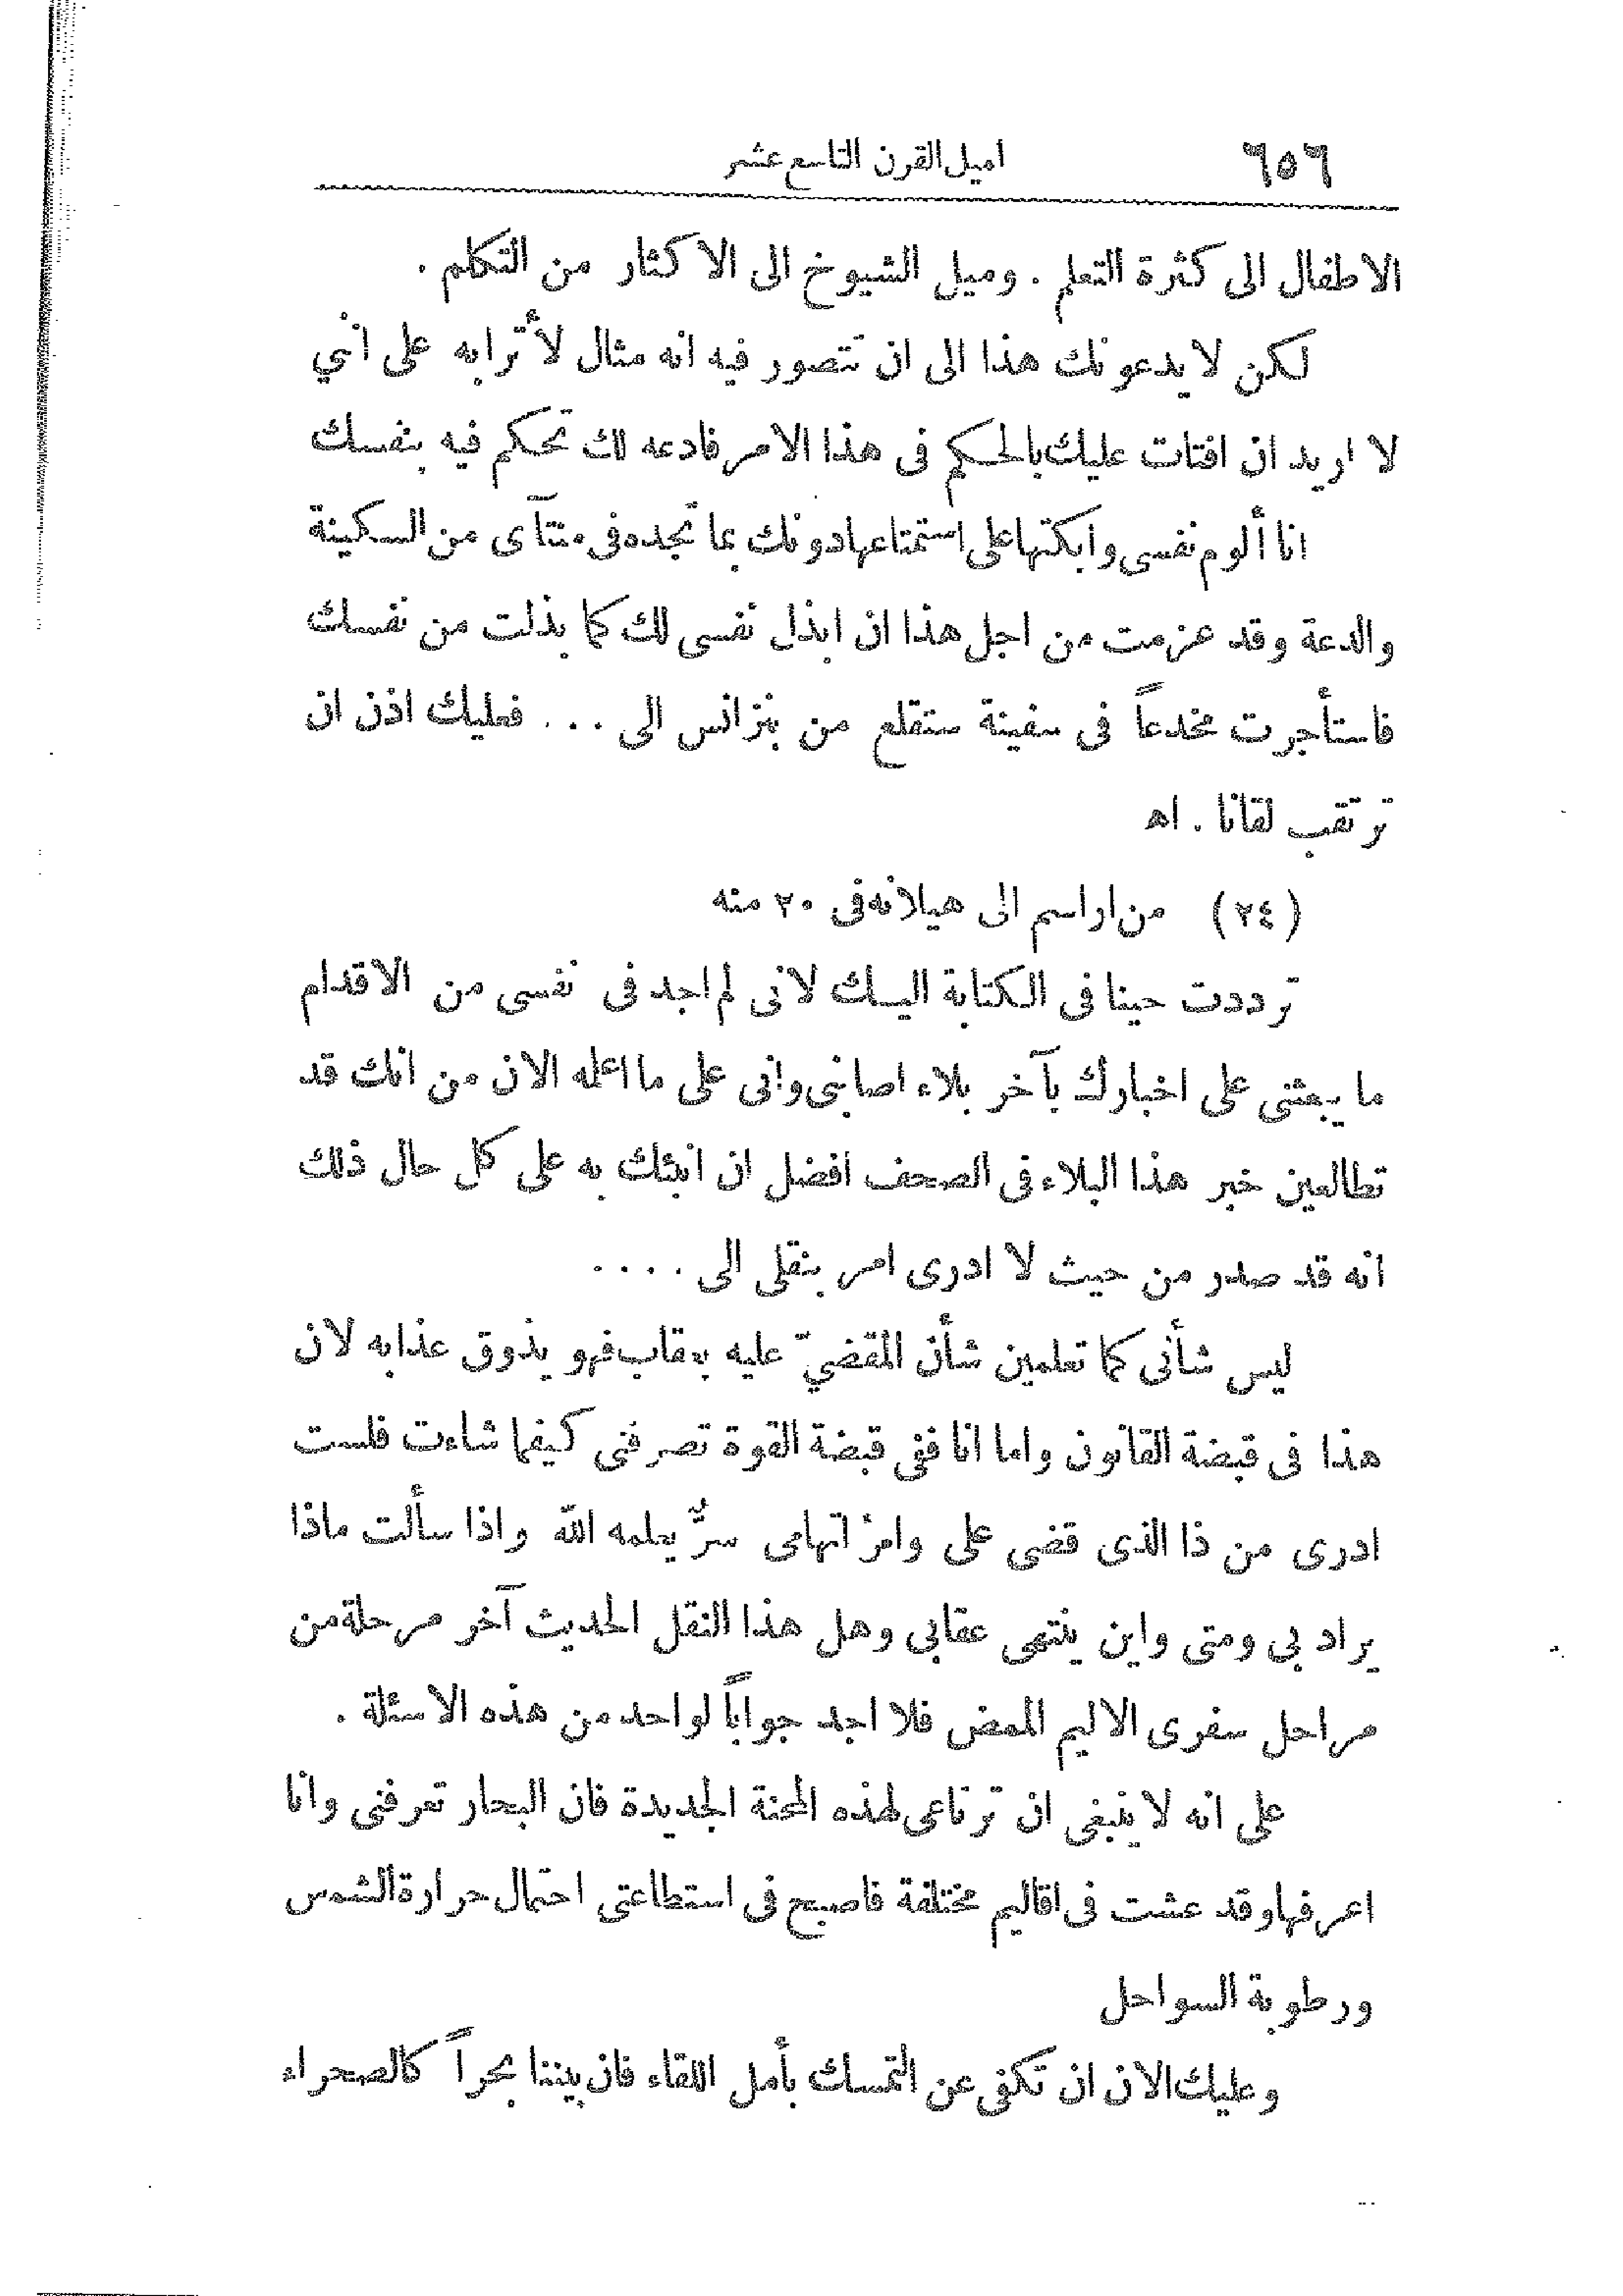 ٦٥٦ اميل القرن التاسع عشر
الاطفال الى كثرة التعلم . وميل الشيوخ الى الاكثار من التكلم .
لكن لا يدعونك هذا الى ان تتصور فيه انه مثال لأترابه على أني
لا اريد ان افتات عليك بالحكم فى هذا الامر فادعه لك تحكم فيه بنفسك
انا ألوم نفسى وابكتها على استمتاعها دونك بما تجده فى منتآى من السكينة
والدعة وقد عزمت من اجل هذا ان ابذل نفسى لك كما بذلت من نفسك
فاستأجرت مخدعاً فى سفينة ستقلع من بنزانس الى . . . فعليك اذن ان
ترتقب لقانا . اه
(٢٤) من اراسم الى هيلانه فى ٢٠ منه
ترددت حينا فى الكتابة اليك لانى لم اجد فى نفسى من الاقدام
ما يبعثنى على اخبارك بآخر بلاء اصابنى وانى على ما اعلمه الان من انك قد
تطالعين خبر هذا البلاء فى الصحف افضل ان انبئك به على كل حال ذلك
انه قد صدر من حيث لا ادرى امر بنقلى الى . . . .
ليس شأنى كما تعلمين شأن المقضيّ عليه بعقاب فهو يذوق عذابه لان
هذا فى قبضة القانون واما انا ففى قبضة القوة تصرفنى كيفما شاءت فلست
ادرى من ذا الذى قضى على وامرُ اتهامى سرٌّ يعلمه اللّه واذا سألت ماذا
يراد بى ومتى واين ينتهى عقابى وهل هذا النقل الحديث آخر مرحلة من
مراحل سفرى الاليم الممض فلا اجد جواباً لواحد من هذه الاسئلة .
على انه لا ينبغى ان ترتاعى لهذه المحنة الجديدة فان البحار تعرفنى وانا
اعرفها وقد عشت فى اقاليم مختلفة فاصبح فى استطاعتى احتمال حرارة الشمس
ورطوبة السواحل
وعليك الان ان تكفى عن التمسك بأمل اللقاء فان بيننا بحراً كالصحراء